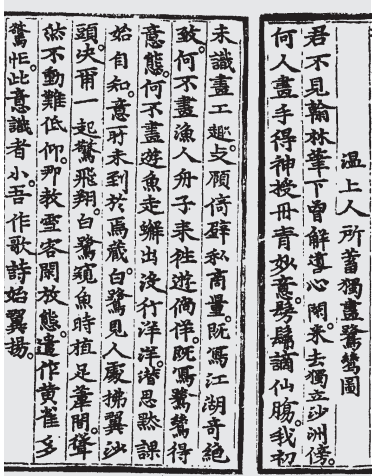 溫上人所蓄獨畫鷺鷥圖
君不見翰林筆下曾解導心閑。来去獨立沙洲傍。
何人畫手得神授丹青妙意。髣髴謫仙腸。我初
未識畫工趣。攴願倚辟私商量。旣寫江湖奇絕
致。何不畫漁人舟子来往遊徜徉。旣寫鷺鷥得
意態。何不畫遊魚走蠏出沒行洋洋。潜思黙課
始自知。意所未到於焉藏。白鷺見人處拂翼沙
頭决。爾一起驚飛翔。白鷺窺魚時植足葦間。聳
然不動難低仰。那敎雪客閑放態。遣作黃雀多
驚忙。此意識者小。吾作歌詩始翼揚。